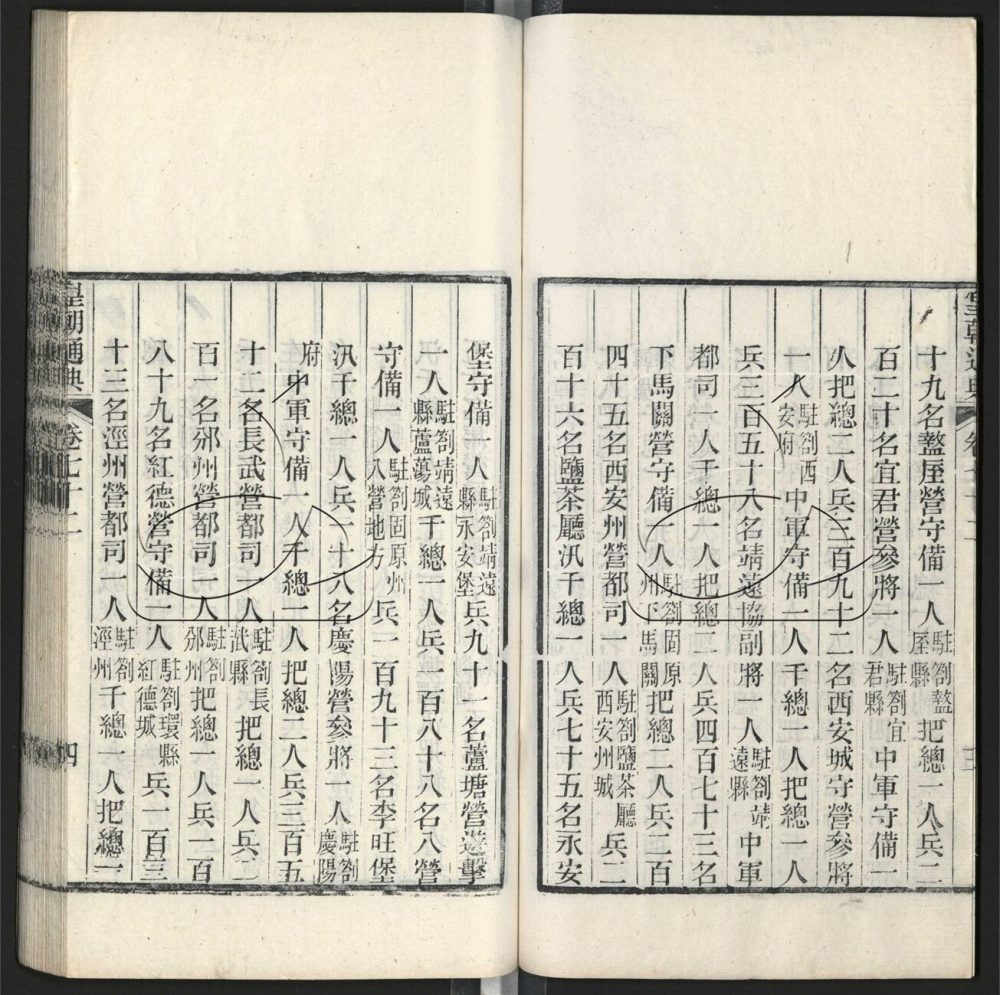 皇朝通典 卷七十二 三
十九名盩厔營守備一人駐劄盩厔縣把總一人兵二
百二十名宜君營參將一人駐劄宜君縣中軍守備一
人把總二人兵三百九十二名西安城守營參將
一人駐劄西安府中軍守備一人千總一人把總一人
兵三百五十八名靖遠協副將一人駐劄靖遠縣中軍
都司一人千總一人把總二人兵四百七十三名
下馬關營守備一人駐劄固原州下馬關把總二人兵二百
四十五名西安州營都司一人駐劄鹽茶廳西安州城兵二
百十六名鹽茶廳汛千總一人兵七十五名永安
堡守備一人駐劄靖遠縣永安堡兵九十一名蘆塘營遊擊
一人駐劄靖遠縣蘆蕩城千總一人兵二百八十八名八營
守備一人駐劄固原州八營地方兵一百九十三名李旺堡
汛千總一人兵六十八名慶陽營參將一人駐劄慶陽
府中軍守備一人千總一人把總二人兵三百五
十二名長武營都司一人駐劄長武縣把總一人兵二
百一名邠州營都司一人駐劄邠州把總一人兵二百
八十九名紅德營守備一人駐劄環縣紅德城兵一百三
十三名涇州營都司一人駐劄涇州千總一人把總一
皇朝通典 卷七十二 四